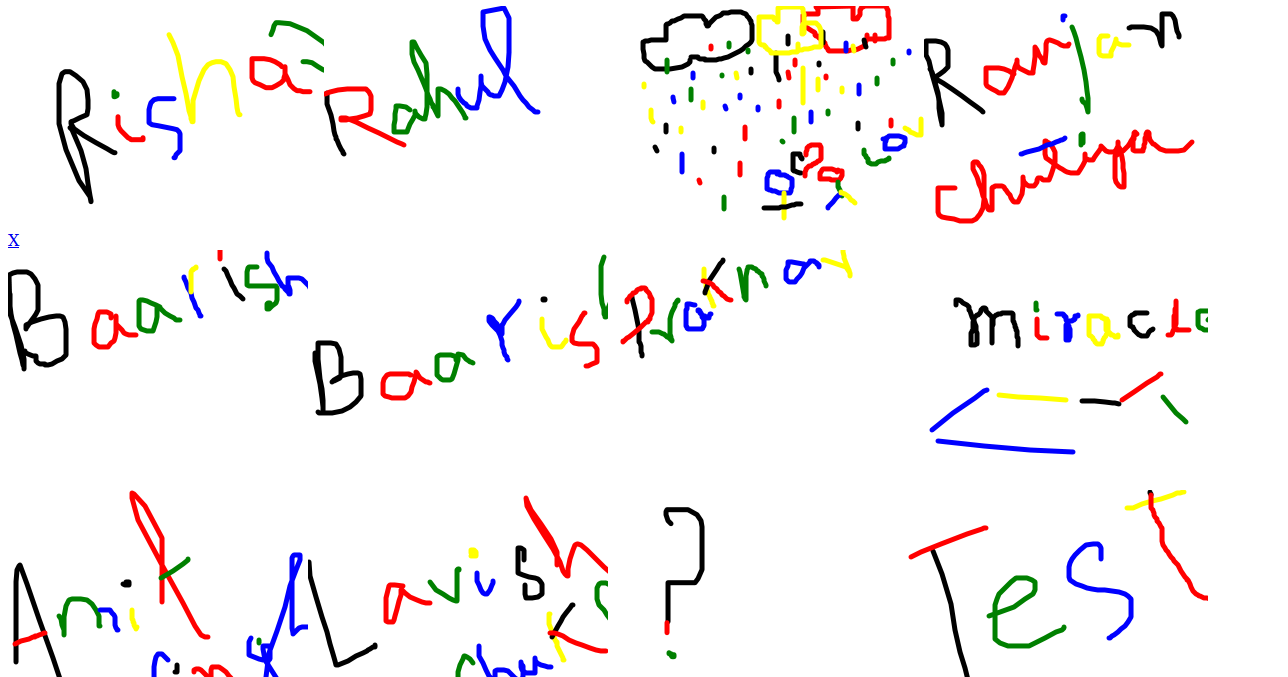 Risha Rahul
Ranjan
chutiya
X
Baarish
Baarish Pranav
miracle
Amit Lavish ?
TesT